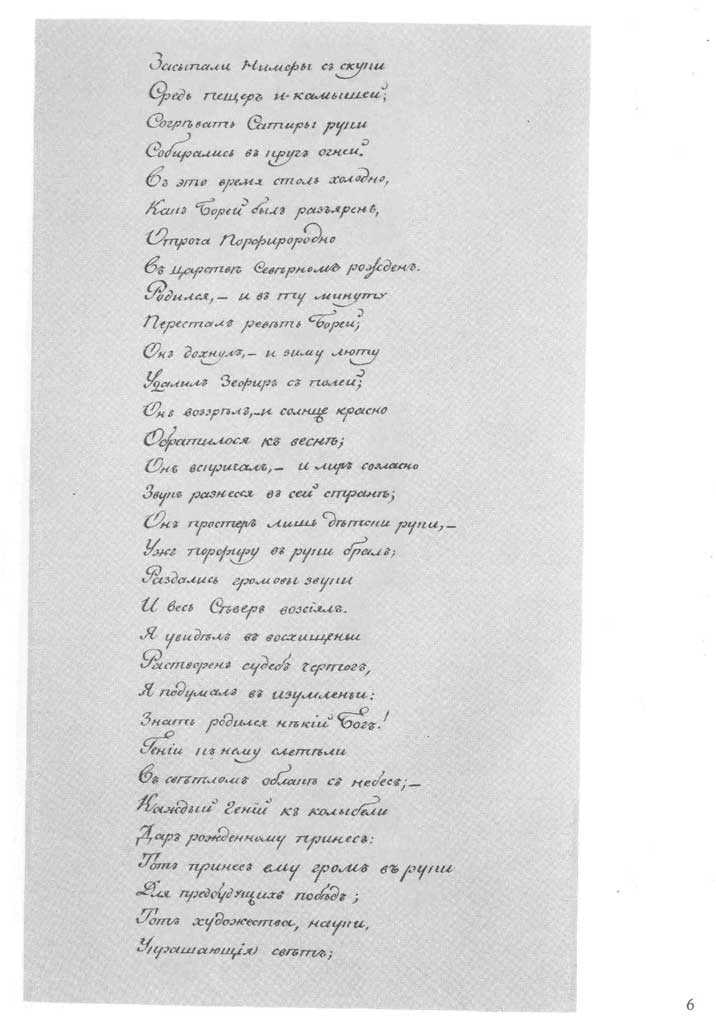 Засыпали Нимфы съ скуки
Средь пещеръ и камышей;
Согрѣвать Сатиры руки
Собирались въ кругъ огней.
Въ это время столь холодно,
Какъ Борей былъ разъяренъ,
Отроча Порфирородно
Въ царствѣ Сѣвѣрномъ рожденъ.
Родился, — и въ ту минуту
Пересталъ ревѣть Борей;
Онъ дохнулъ, — и зиму люту
Удалилъ Зефиръ съ полей;
Онъ воззрѣлъ, — и солнце красно
Обратилося къ веснѣ;
Онъ вскричалъ, — и лиръ согласно
Звукъ разнесся въ сей странѣ;
Онъ простеръ лишь дѣтски руки, —
Ужъ порфиру въ руки бралъ;
Раздались громовы звуки
И весь Сѣверъ возсіялъ.
Я увидѣлъ въ восхищеньи
Растворенъ судебъ чертогъ,
Я подумалъ въ изумленьи:
Знать родился нѣкій Богъ!
Геніи къ нему слетѣли
Въ свѣтломъ облакѣ съ небесъ; —
Каждый Геній къ колыбели
Даръ рожденному принесъ:
Тотъ принесъ ему громъ въ руки
Для предбудущихъ побѣдъ;
Тотъ художества, науки,
Украшающія свѣтъ;
6